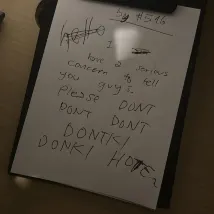 by #516
hello
I
have a serious
concern to tell
you guys.
Please DONT
DONT DONT
DONTK!
DONK! HOTEL